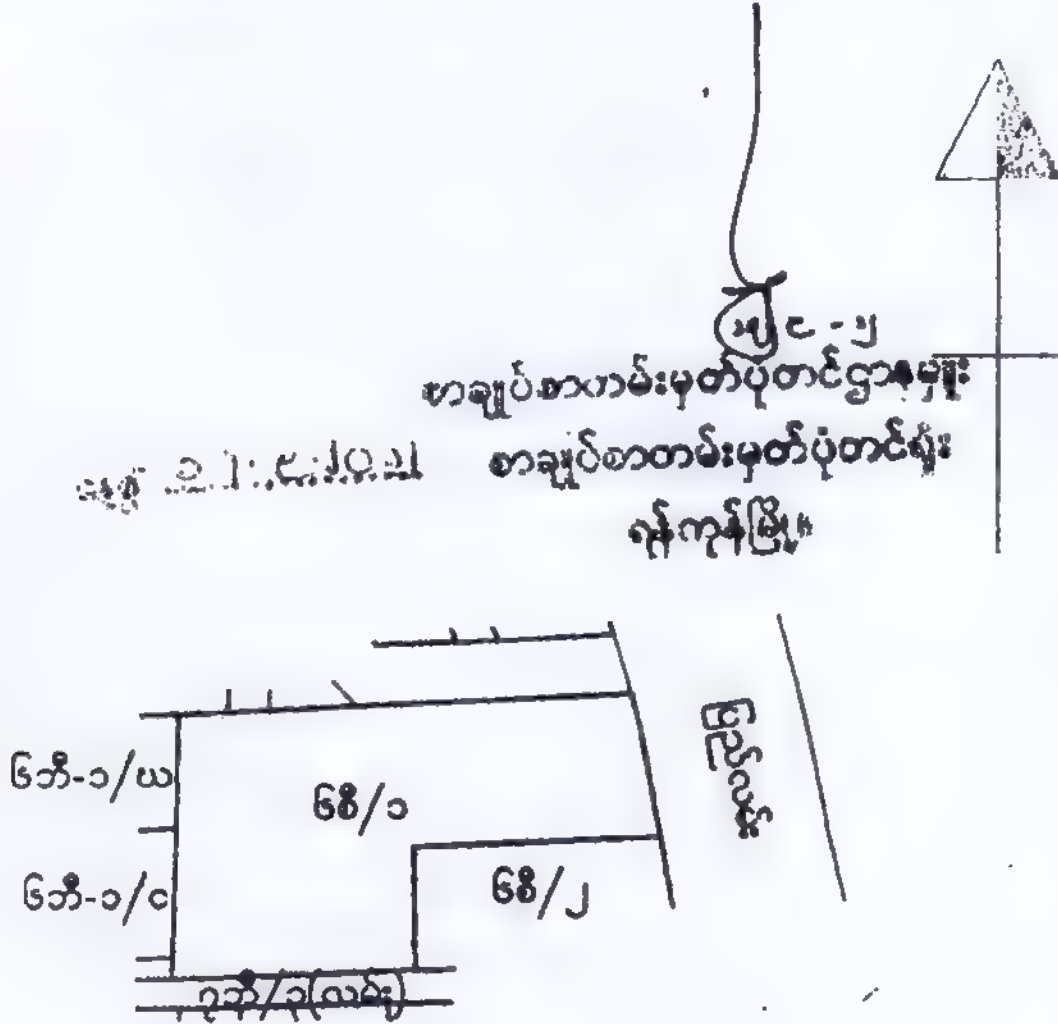 စာချုပ်စာတမ်းမှတ်ပုံတင်ဌာနမှူး
စာချုပ်စာတမ်းမှတ်ပုံတင်ရုံး
ရန်ကုန်မြို့။
ပြည်လမ်း
၆ဘီ-၁/ဃ
၆စီ/၁
၆ဘီ-၁/င
၆စီ/၂
၇ဘီ/၃(လမ်း)